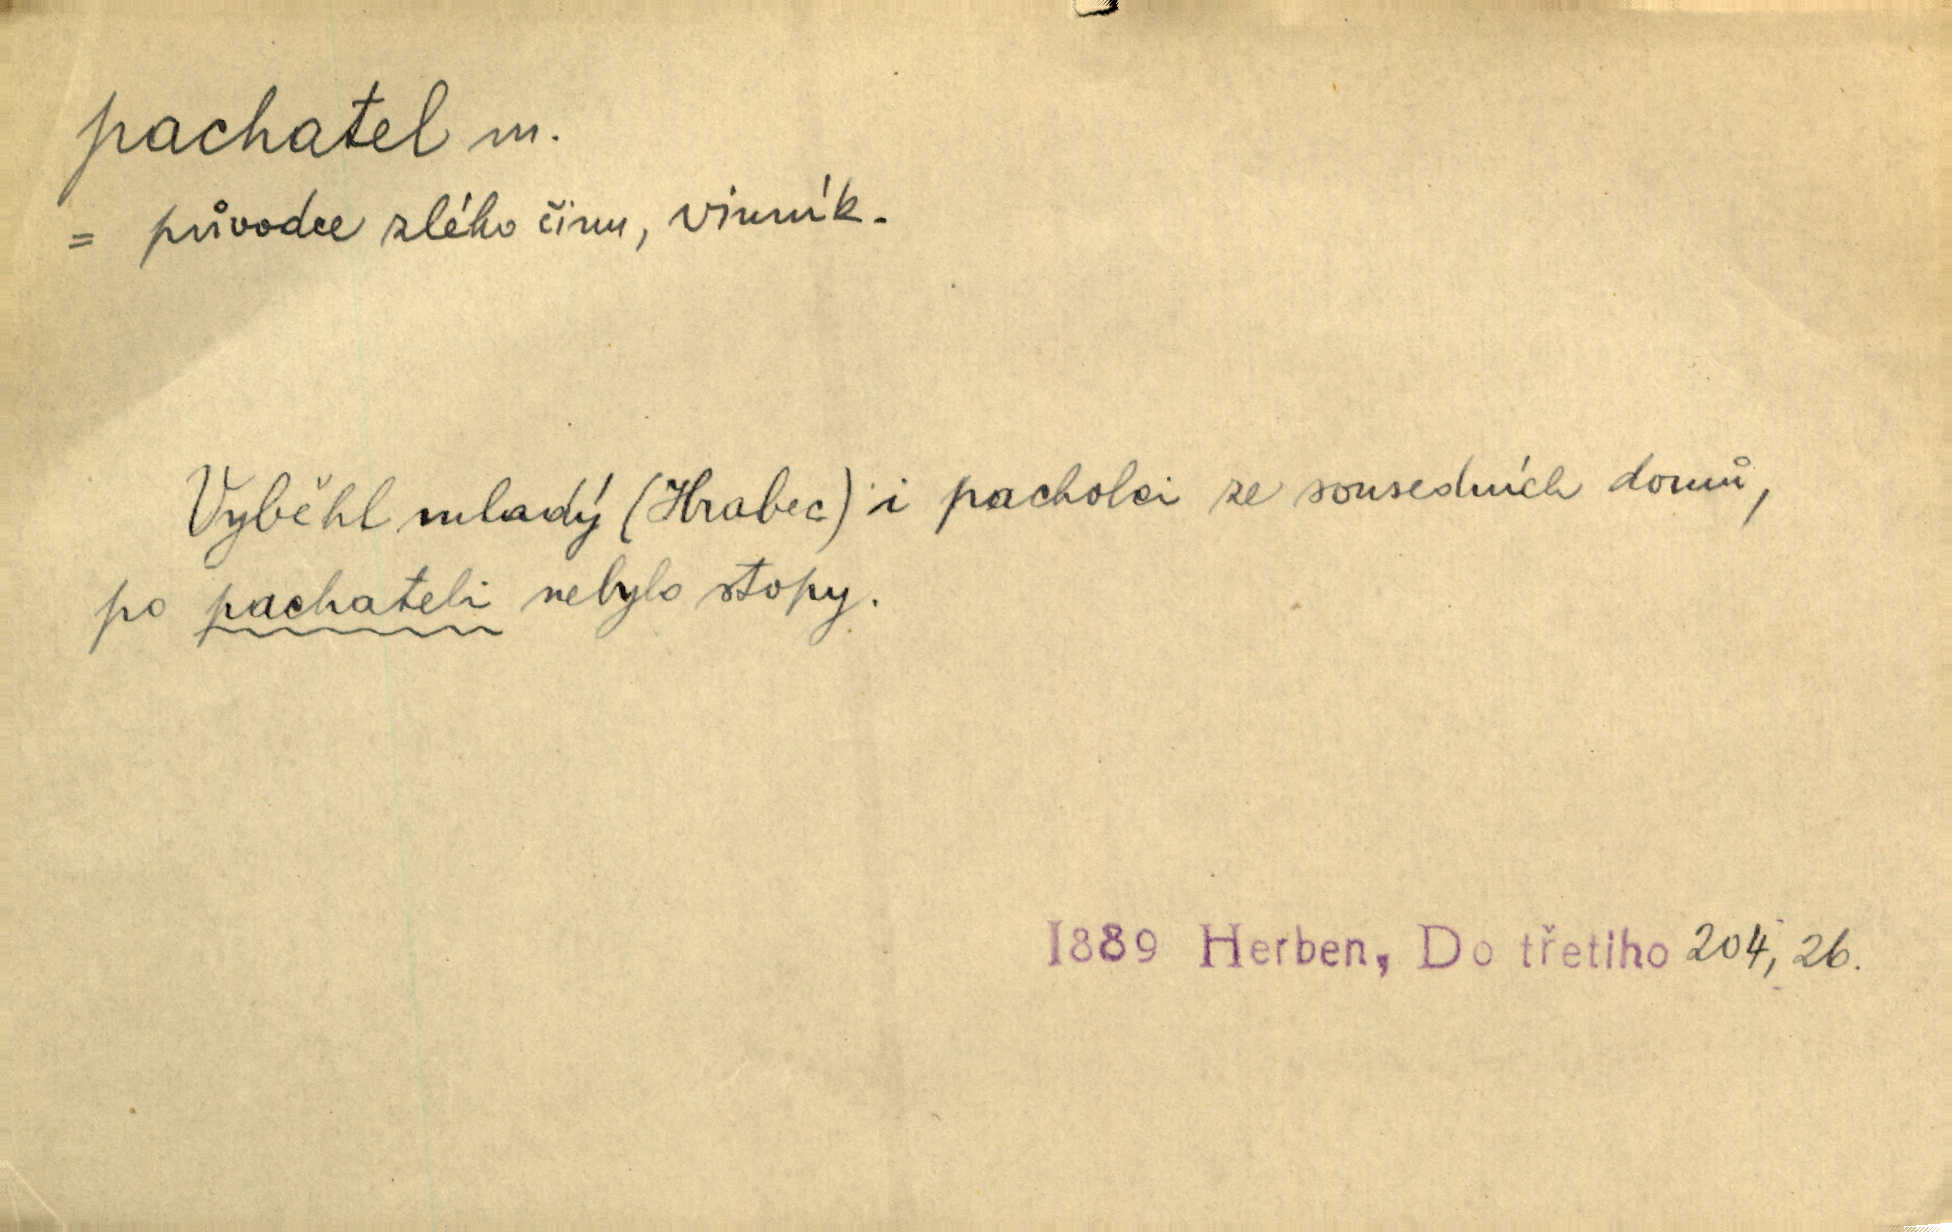 pachatel m.
= původce zlého činu, vinník.
Vyběhl mladý (Hrabec) i pacholci ze sousedních domů,
po pachateli nebylo stopy.
1889 Herben, Do třetiho 204, 26.